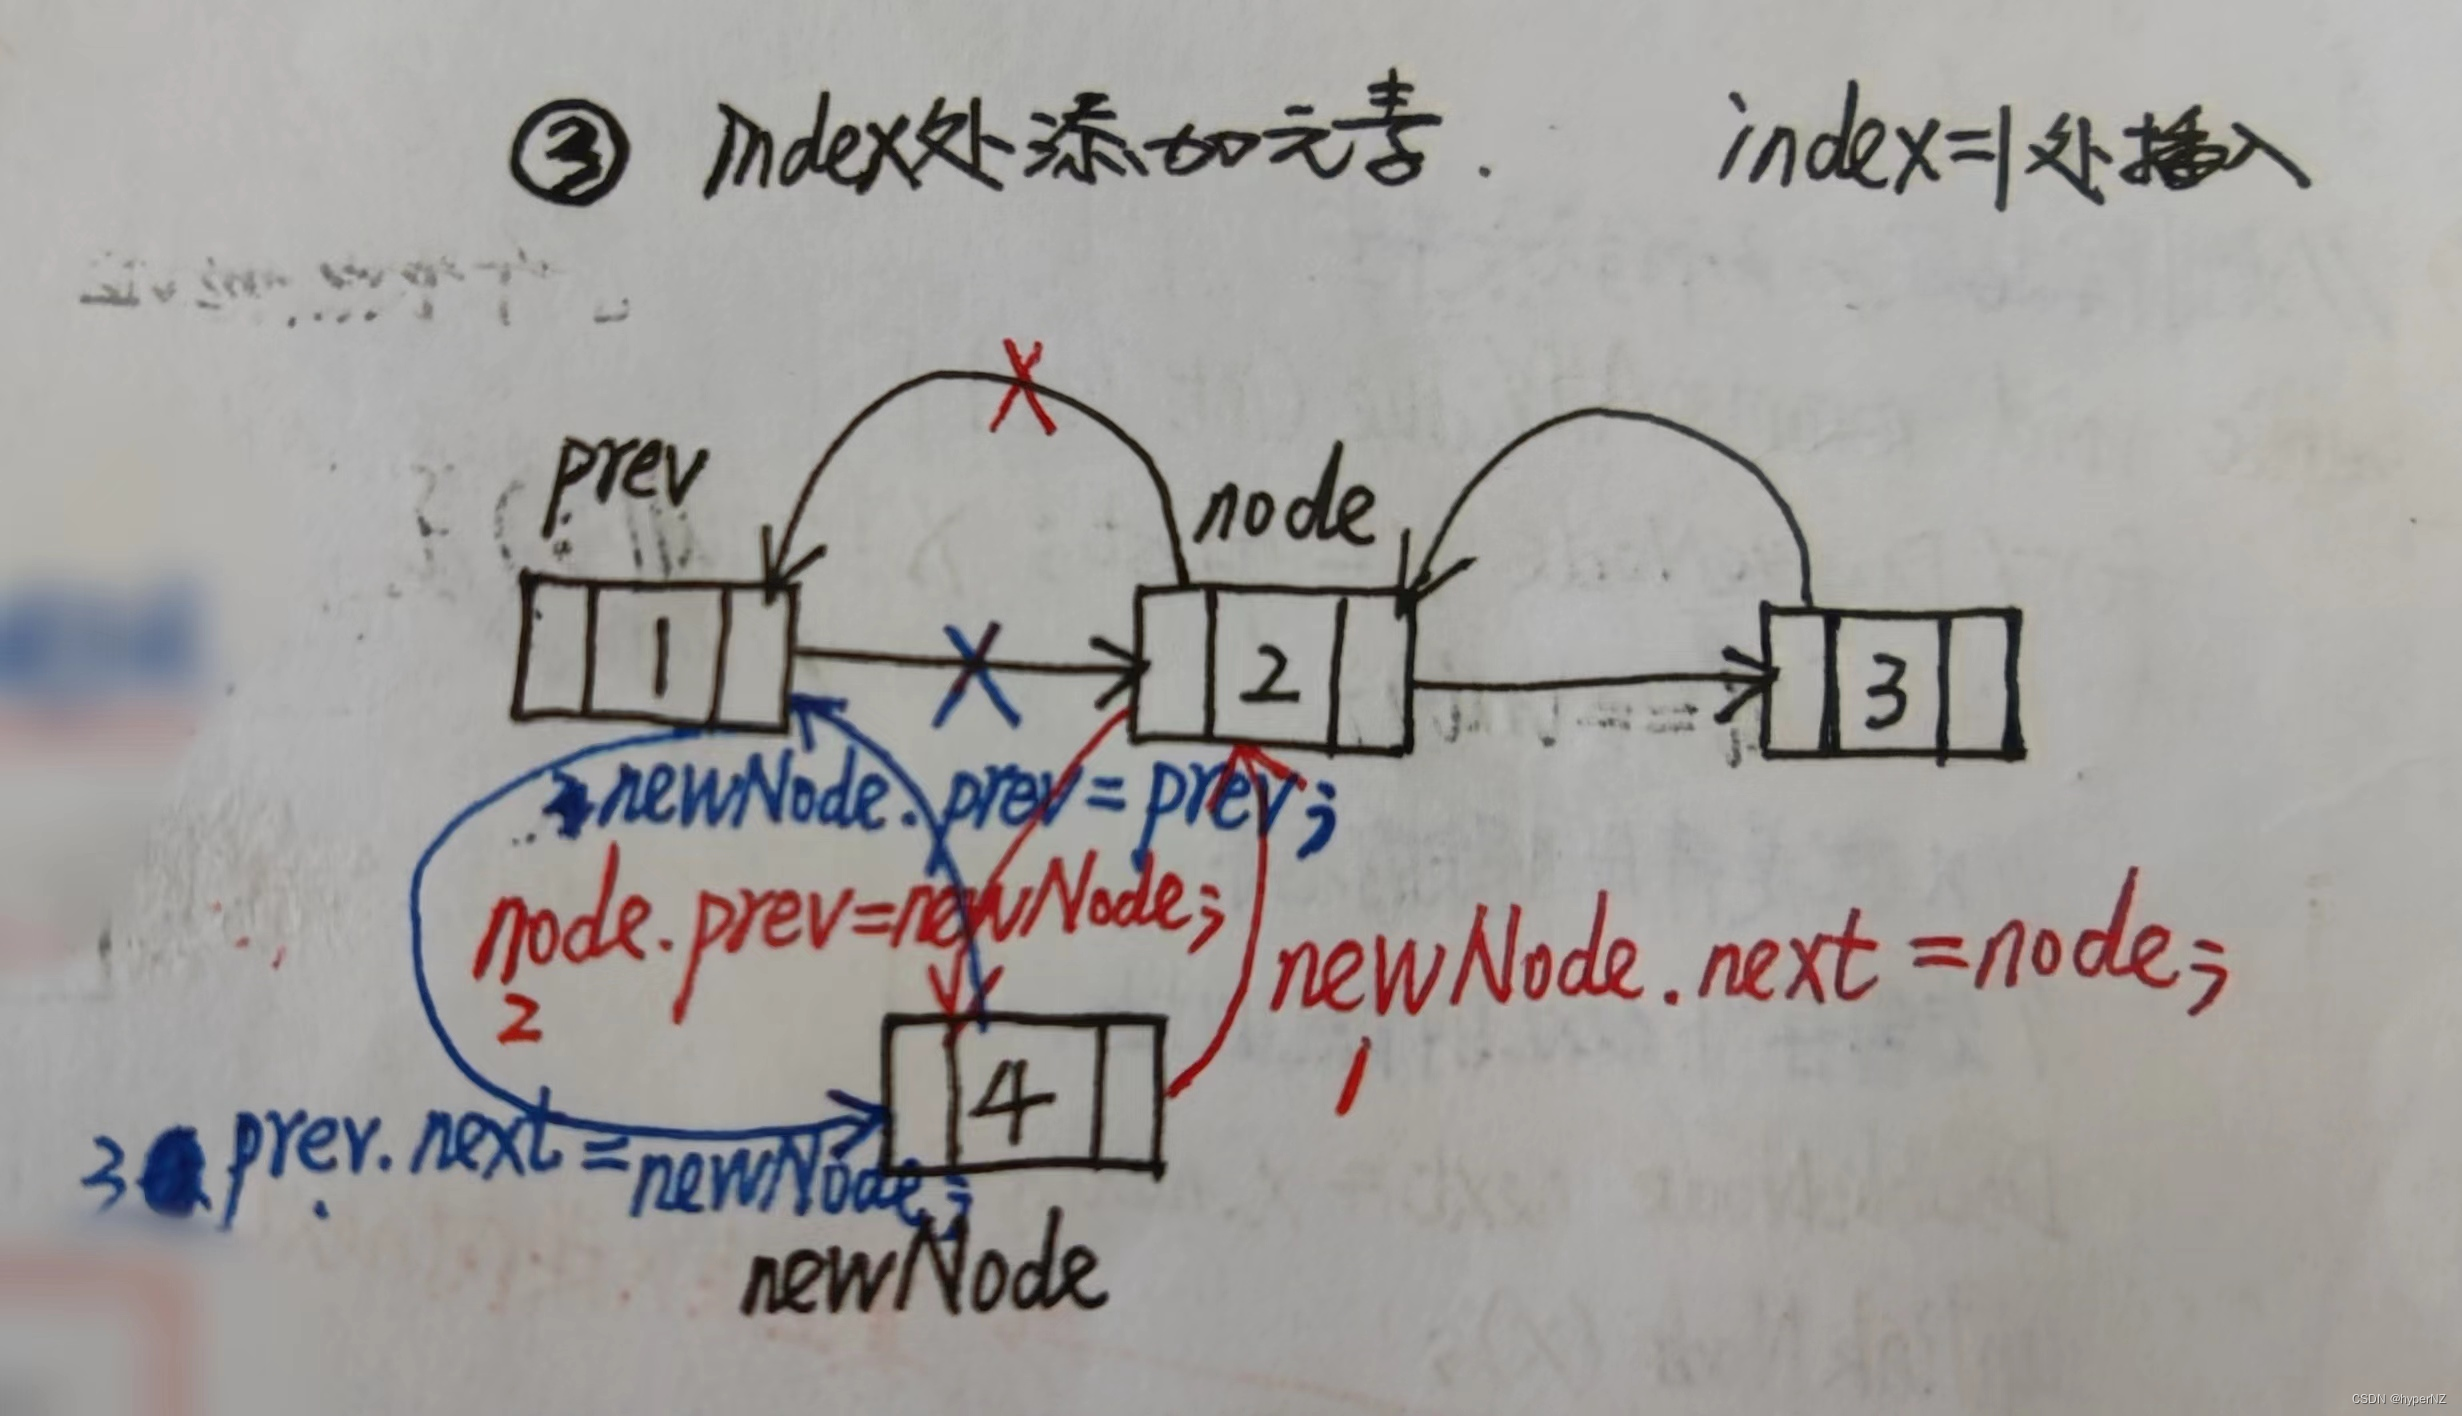 ③ Index处添加元素. index=1处插入
prev
node
1
2
3
newNode.prev=prev;
node.prev=newNode;
2
newNode.next=node;
1
4
3 prev.next=newNode;
newNode
CSDN @hyperNZ